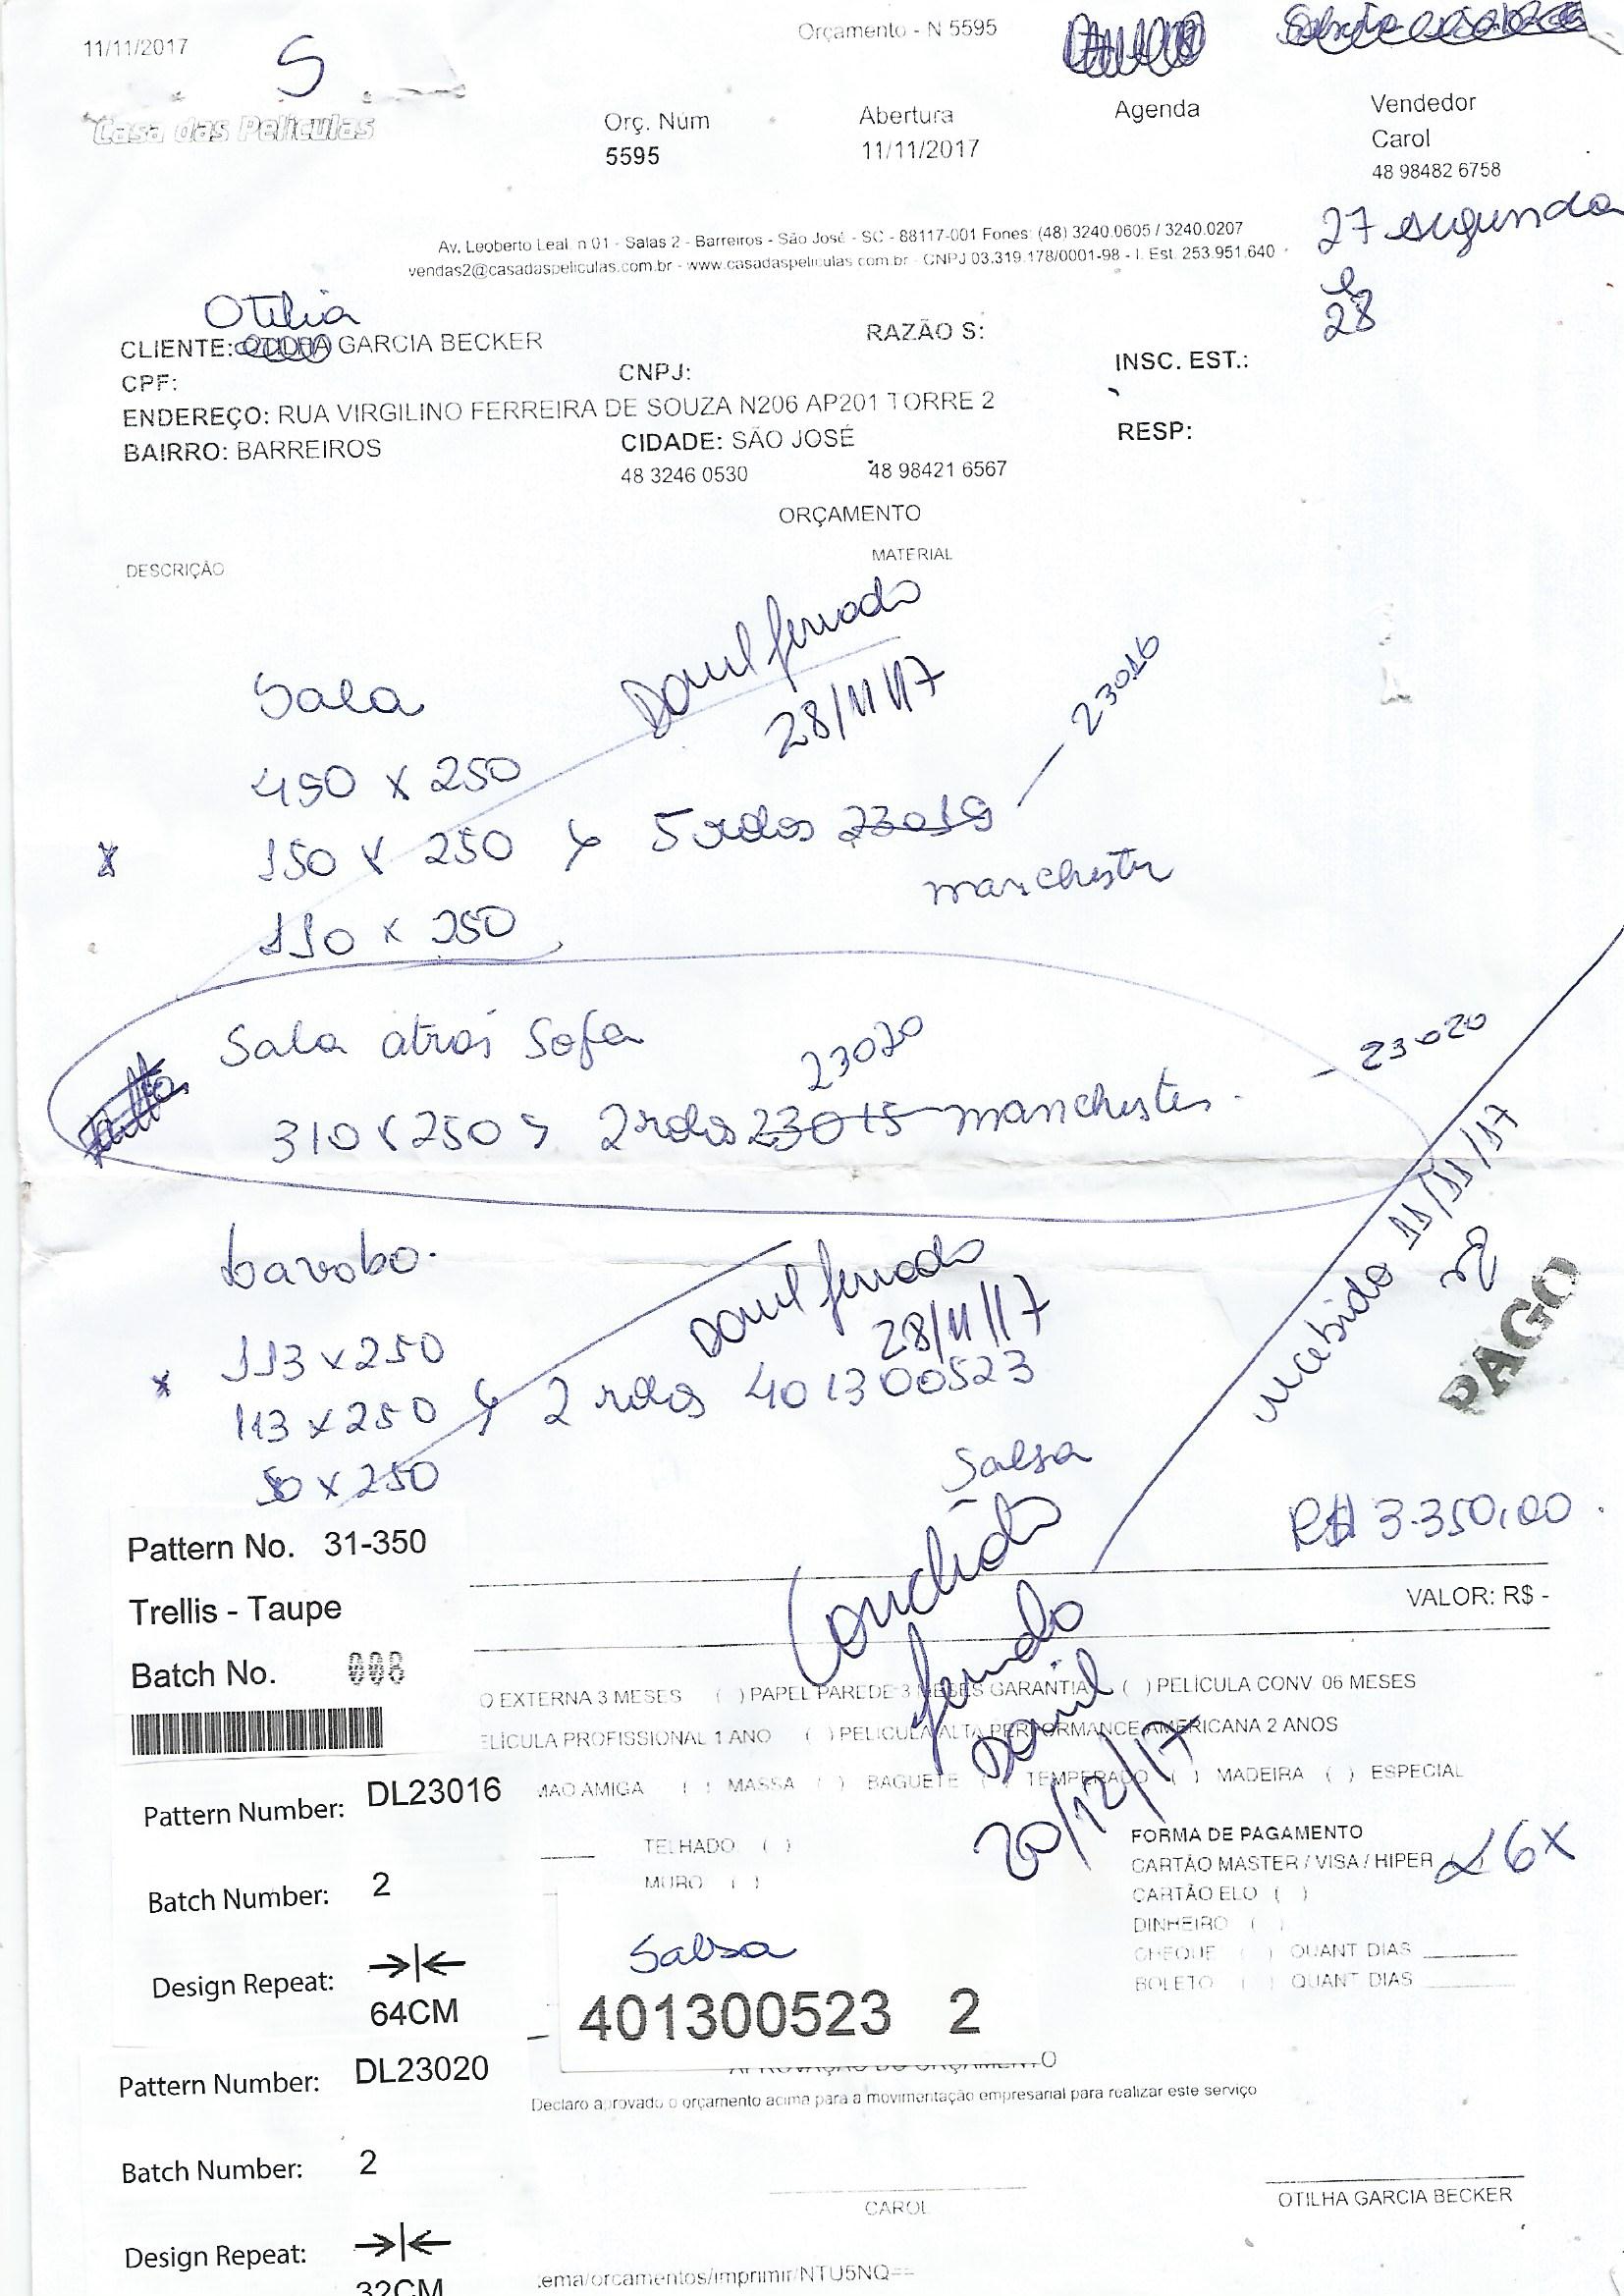 11/11/2017
Orçamento - N 5595
S
Casa das Películas
Orç. Núm
5595
Abertura
11/11/2017
Agenda
Vendedor
Carol
48 98482 6758
27 segunda
e
28
Av. Leoberto Leal, n 01 - Salas 2 - Barreiros - São José - SC - 88117-001 Fones: (48) 3240.0605 / 3240.0207
vendas2@casadaspeliculas.com.br - www.casadaspeliculas.com.br - CNPJ 03.319.178/0001-98 - I. Est. 253.951.640
Otilia
CLIENTE: GARCIA BECKER
RAZÃO S:
CPF:
CNPJ:
INSC. EST.:
ENDEREÇO: RUA VIRGILINO FERREIRA DE SOUZA N206 AP201 TORRE 2
BAIRRO: BARREIROS
CIDADE: SÃO JOSÉ
RESP:
48 3246 0530
48 98421 6567
ORÇAMENTO
DESCRIÇÃO
MATERIAL
28/11/17
23016
Sala
450 x 250
150 x 250 5 rolos 23019
manchester
110 x 250
Sala atras Sofa
23020
310 x 250 2 rolos 23015 manchester.
- 23020
recebido 11/11/17
PAGO
Lavabo.
28/11/17
113 x 250
113 x 250 2 rolos 401300523
Salsa
50 x 250
R$ 3.350,00.
VALOR: R$ -
20/12/17
Pattern No. 31-350
Trellis - Taupe
Batch No. 008
O EXTERNA 3 MESES ( ) PAPEL PAREDE 3 MESES GARANTIA ( ) PELÍCULA CONV 06 MESES
ELÍCULA PROFISSIONAL 1 ANO ( ) PELICULA ALTA PERFORMANCE AMERICANA 2 ANOS
MAO AMIGA ( ) MASSA ( ) BAGUETE ( ) TEMPERADO ( ) MADEIRA ( ) ESPECIAL
TELHADO ( )
MURO ( )
FORMA DE PAGAMENTO
CARTÃO MASTER / VISA / HIPER 6x
CARTÃO ELO ( )
DINHEIRO ( )
CHEQUE ( ) QUANT DIAS
BOLETO ( ) QUANT DIAS
Pattern Number: DL23016
Batch Number: 2
Design Repeat: 64CM
Salsa
401300523 2
Pattern Number: DL23020
Batch Number: 2
Design Repeat: 32CM
APROVAÇÃO DO ORÇAMENTO
Declaro aprovado o orçamento acima para a movimentação empresarial para realizar este serviço
CAROL
OTILHA GARCIA BECKER
.ema/orcamentos/imprimir/NTU5NQ==